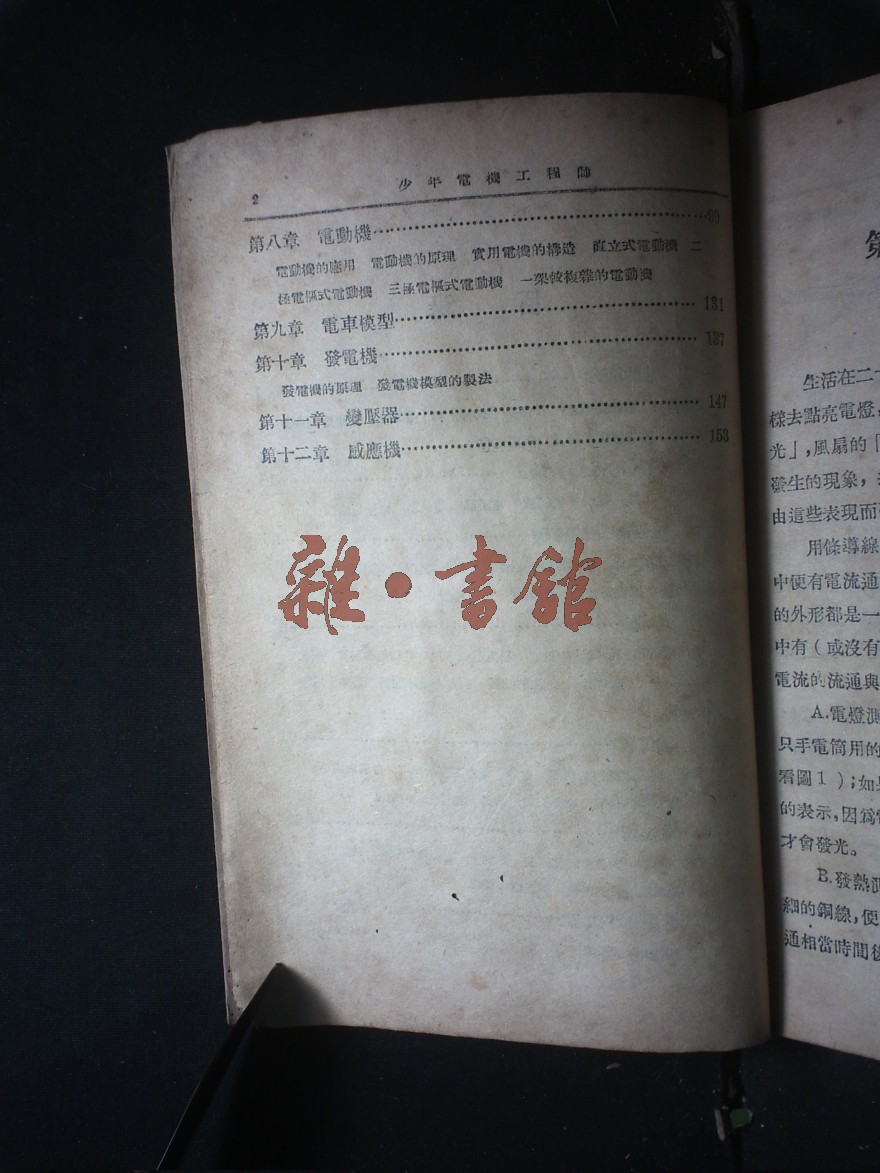 2
少年電機工程師
第八章 電動機……99
電動機的應用 電動機的原理 實用電機的構造 直立式電動機 二
極電樞式電動機 三極電樞式電動機 一架較複雜的電動機
第九章 電車模型……131
第十章 發電機……137
發電機的原理 發電機模型的製法
第十一章 變壓器……147
第十二章 感應機……153
雜·書館
第
生活在二十
樣去點亮電燈,
光」,風扇的「
發生的現象,
由這些表現而
用條導線
中便有電流通
的外形都是一
中有(或沒有
電流的流通與
A.電燈測
只手電筒用的
看圖1);如果
的表示,因爲
才會發光。
B.發熱測
細的銅線,便
通相當時間後